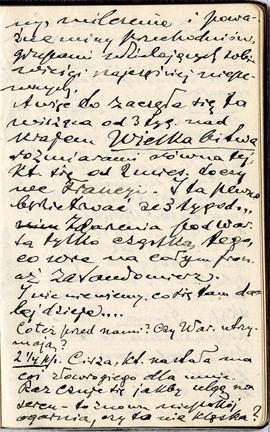 ny, milczenie i powa-
żne miny przechodniów,
grupami udzielających sobie
wieści najczęściej niepe-
wnych.
A więc do zaczęła się ta
wisząca od 3 tyg. nad
krajem Wielka bitwa
rozmiarami równa tej,
kt. się od 2 mies. toczy
we Francji. I ta pewno
będzie trwać ze 3 tygod...
Zdarzenia pod War.
to tylko cząstka tego,
co wre na całym fron.
aż za Sandomierz.
I nic nie wiemy, co się tam da-
lej dzieje....
Cóż przed nami? Czy War. utrzy-
mają?
2 1/4 pp. Cisza, kt. nastała ma
coś złowrogiego dla mnie.
Raz czuję się jakby ulgę na
sercu – to znowu niepokój
ogarnia, czy to nie klęska?